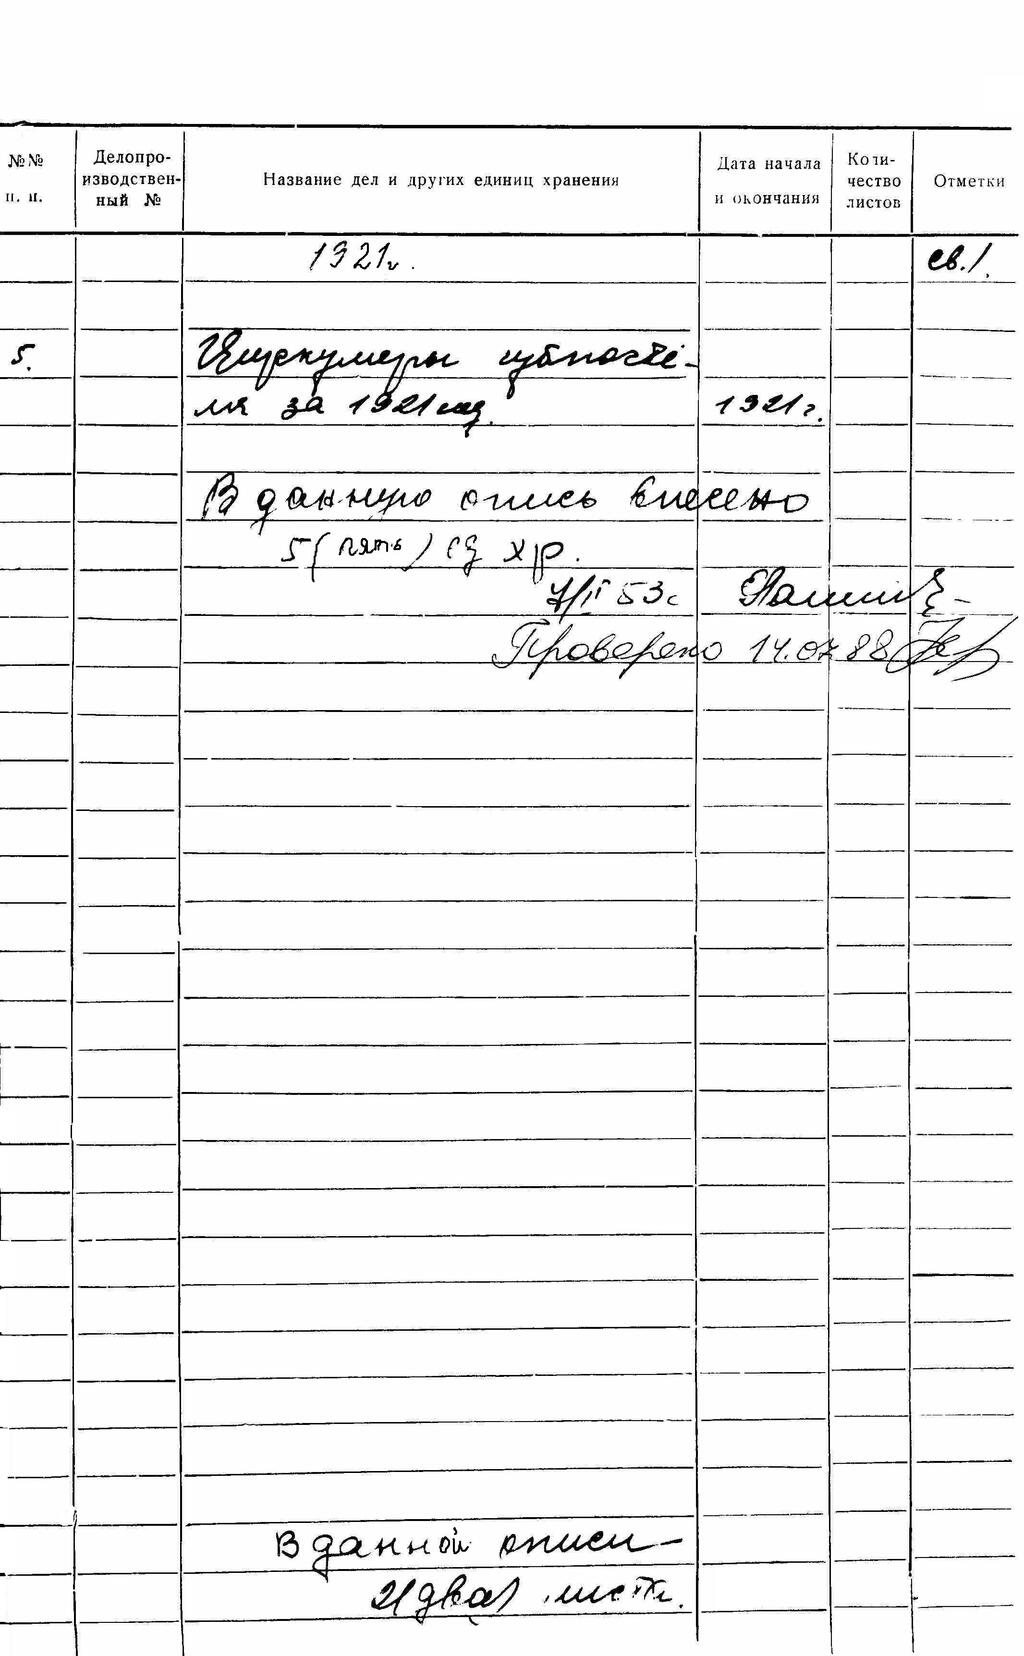 №№ п. п.
Делопро-
изводствен-
ный №
Название дел и других единиц хранения
Дата начала
и окончания
Коли-
чество
листов
Отметки
1921г.
св.1.
5.
Циркуляры
ля за 1921 год. 1921 г.
В данную опись внесено
5 (пять) ед хр.
7/II 53г
Проверено 14.07.88
В данной описи –
2 (два) листа.